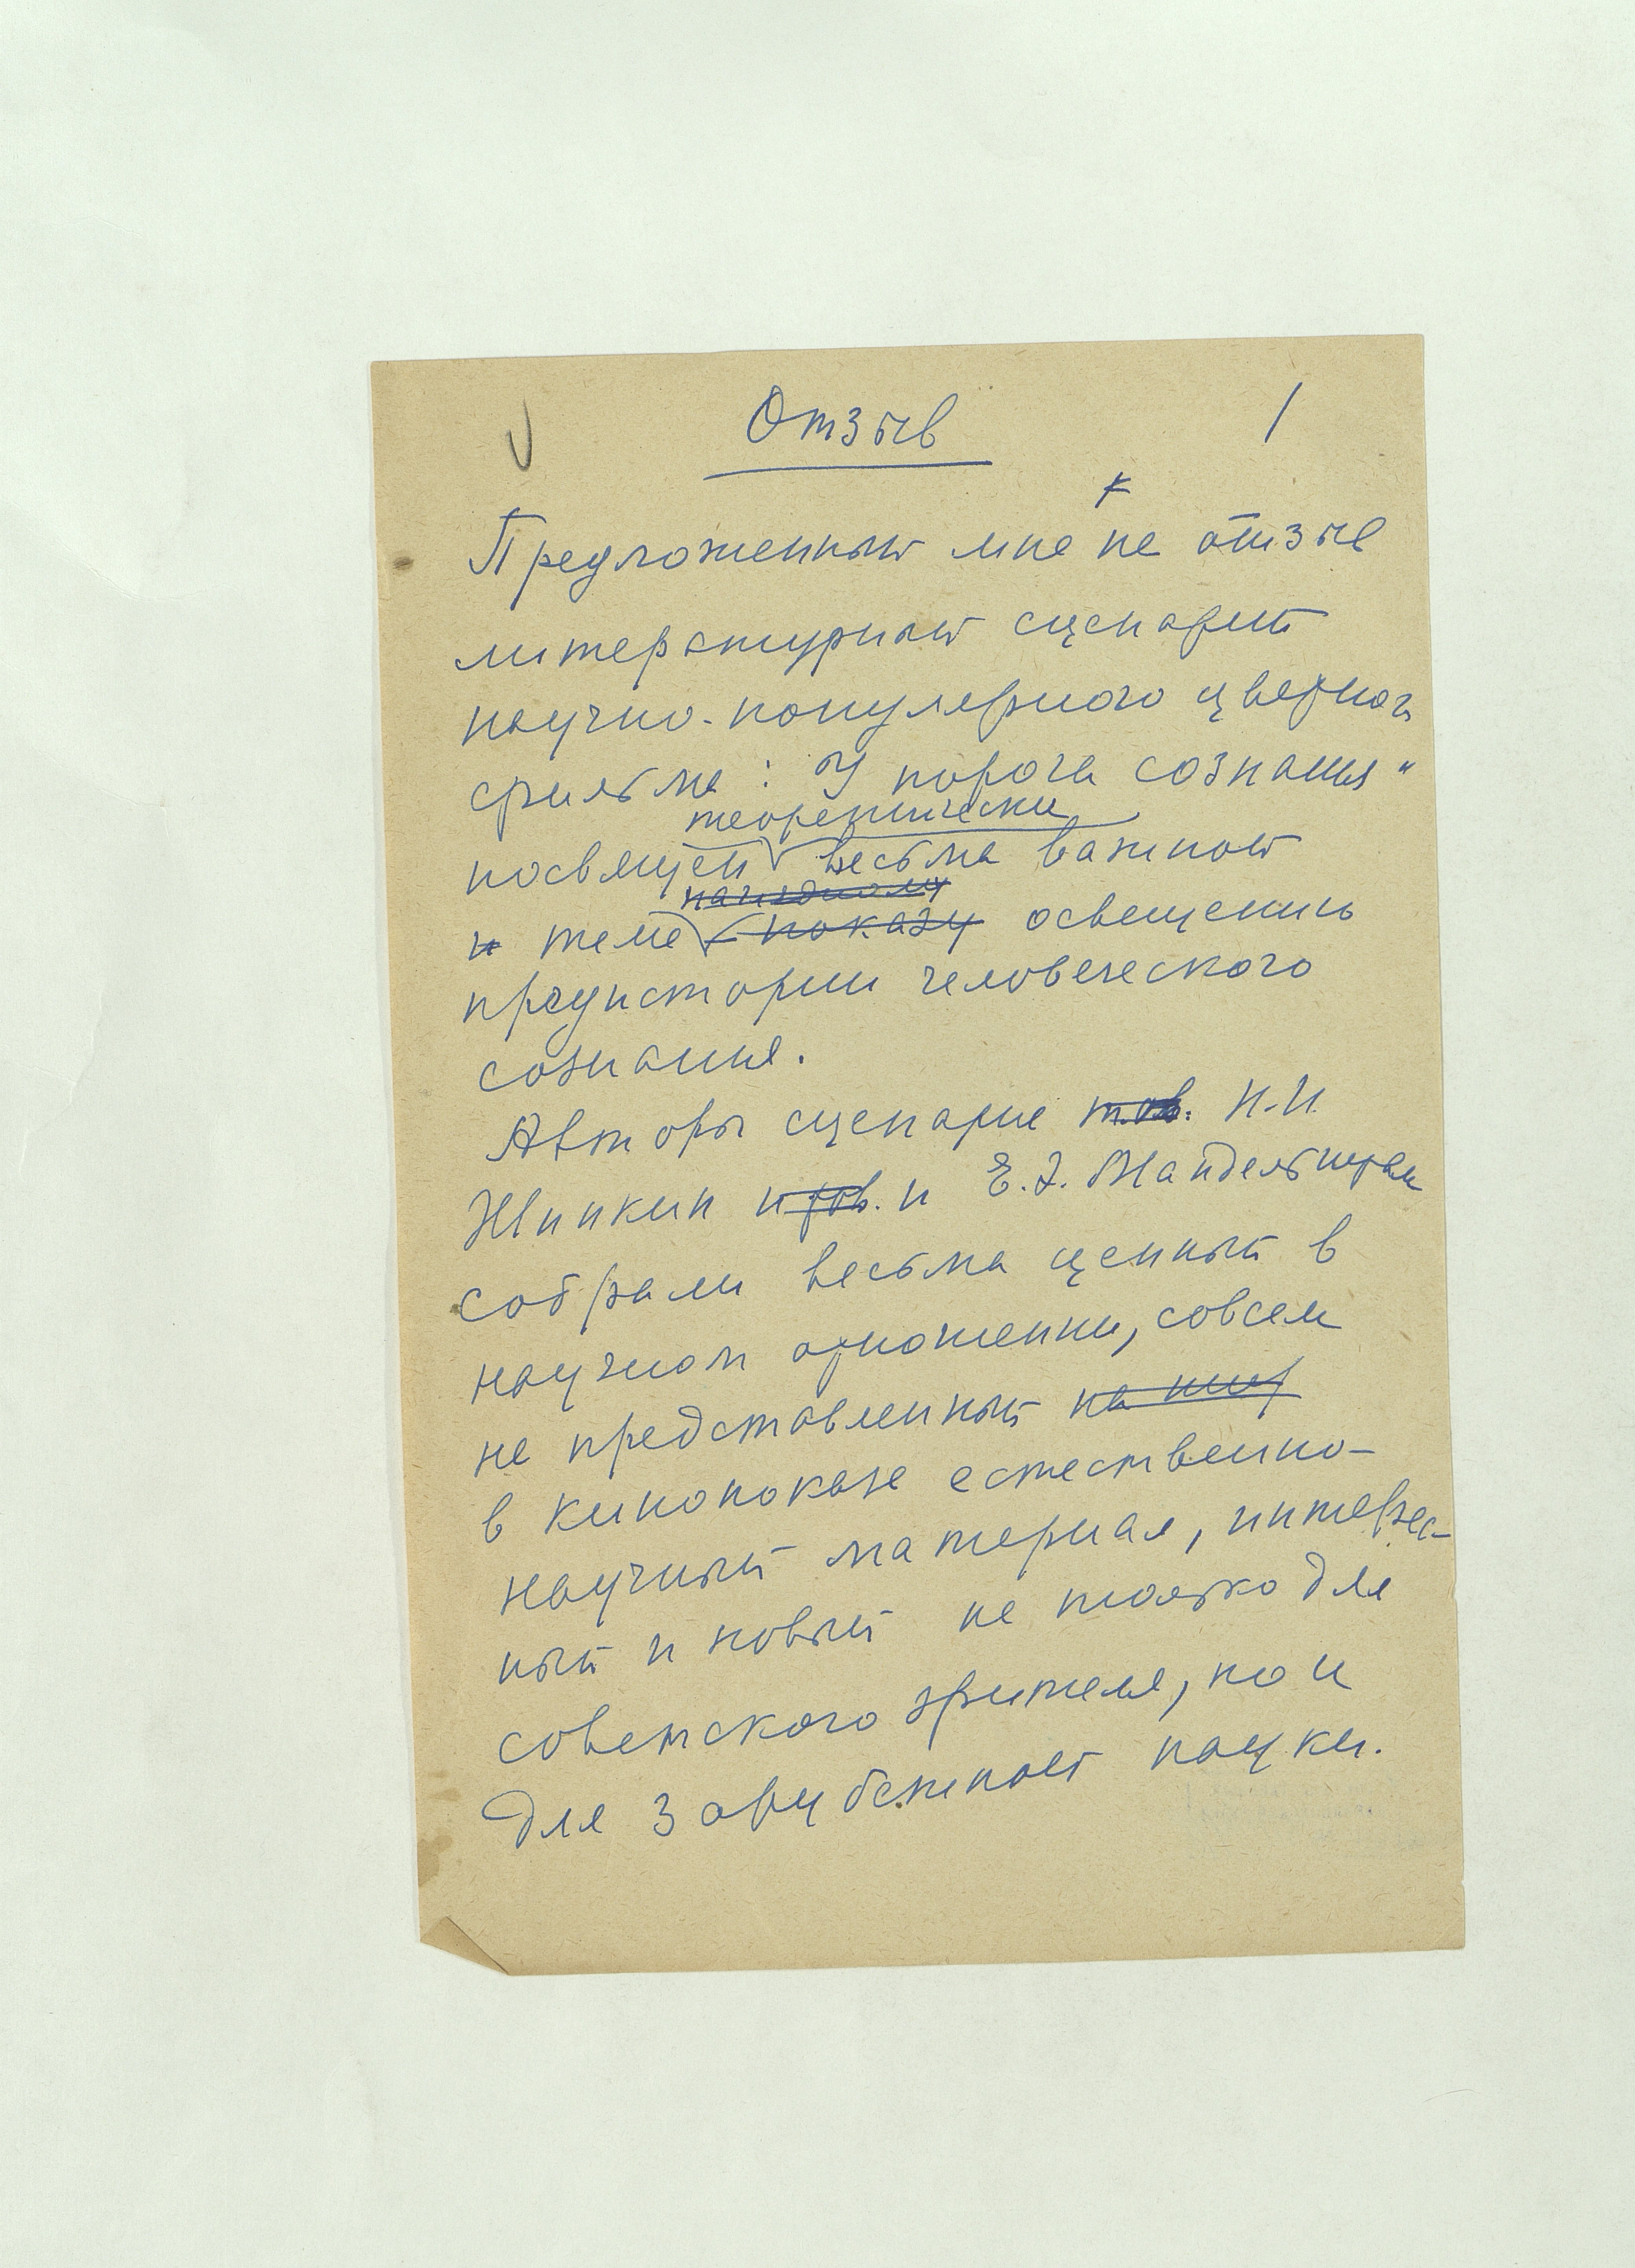 Отзыв 1
Предложенный мне на отзыв
литературный сценарий
научно-популярного цветного
фильма: У порога сознания"
теоретически
посвящен весьма важной
наглядному
и теме показу освещению
предистории человеческого
сознания.
Авторы сценария тов. Н.И.
Жинкин и тов. и Е.З. Мандельштам
собрали весьма ценный в
научном отношении, совсем
не представленный
в кинопоказе естественно-
научный материал, интерес-
ный и новый не только для
советского зрителя, но и
для зарубежной науки.